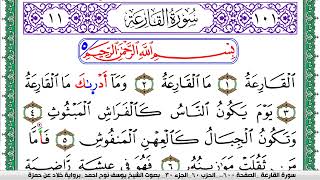 ١١ سُورَةُ القَارِعَةِ ١٠١
بِسْمِ اللَّهِ الرَّحْمَٰنِ الرَّحِيمِ
القَارِعَةُ ١ مَا القَارِعَةُ ٢ وَمَا أَدْرَىٰكَ مَا القَارِعَةُ
٣ يَوْمَ يَكُونُ النَّاسُ كَالْفَرَاشِ الْمَبْثُوثِ ٤
وَتَكُونُ الْجِبَالُ كَالْعِهْنِ الْمَنْفُوشِ ٥ فَأَمَّا
مَن ثَقُلَتْ مَوَٰزِينُهُ ٦ فَهُوَ فِي عِيشَةٍ رَّاضِيَةٍ
سورة القارعة . الصفحة ٦٠٠ . الحزب ٦٠ . الجزء ٣٠ . بصوت الشيخ يوسف نوح احمد . برواية خلاد عن حمزة